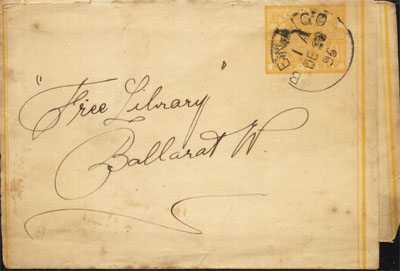 BENDIGO
1 A
DE
95
"Free Library"
Ballarat W.